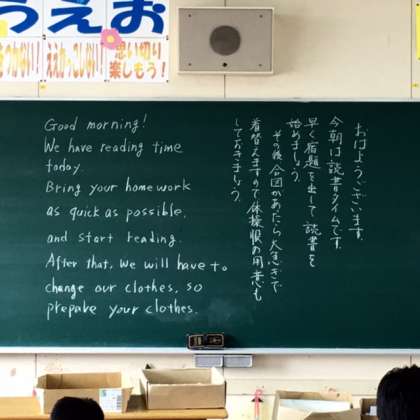 うえお
をつかない!
ええかっこしない!
思い切り
楽しもう!
Good morning!
We have reading time
today.
Bring your homework
as quick as possible,
and start reading.
After that, we will have to
change our clothes, so
prepare your clothes.
おはようございます。
今朝は読書タイムです。
早く宿題を出して読書を
始めましょう。
その後、合図があったら大急ぎで
着替えますので体操服の用意も
しておきましょう。